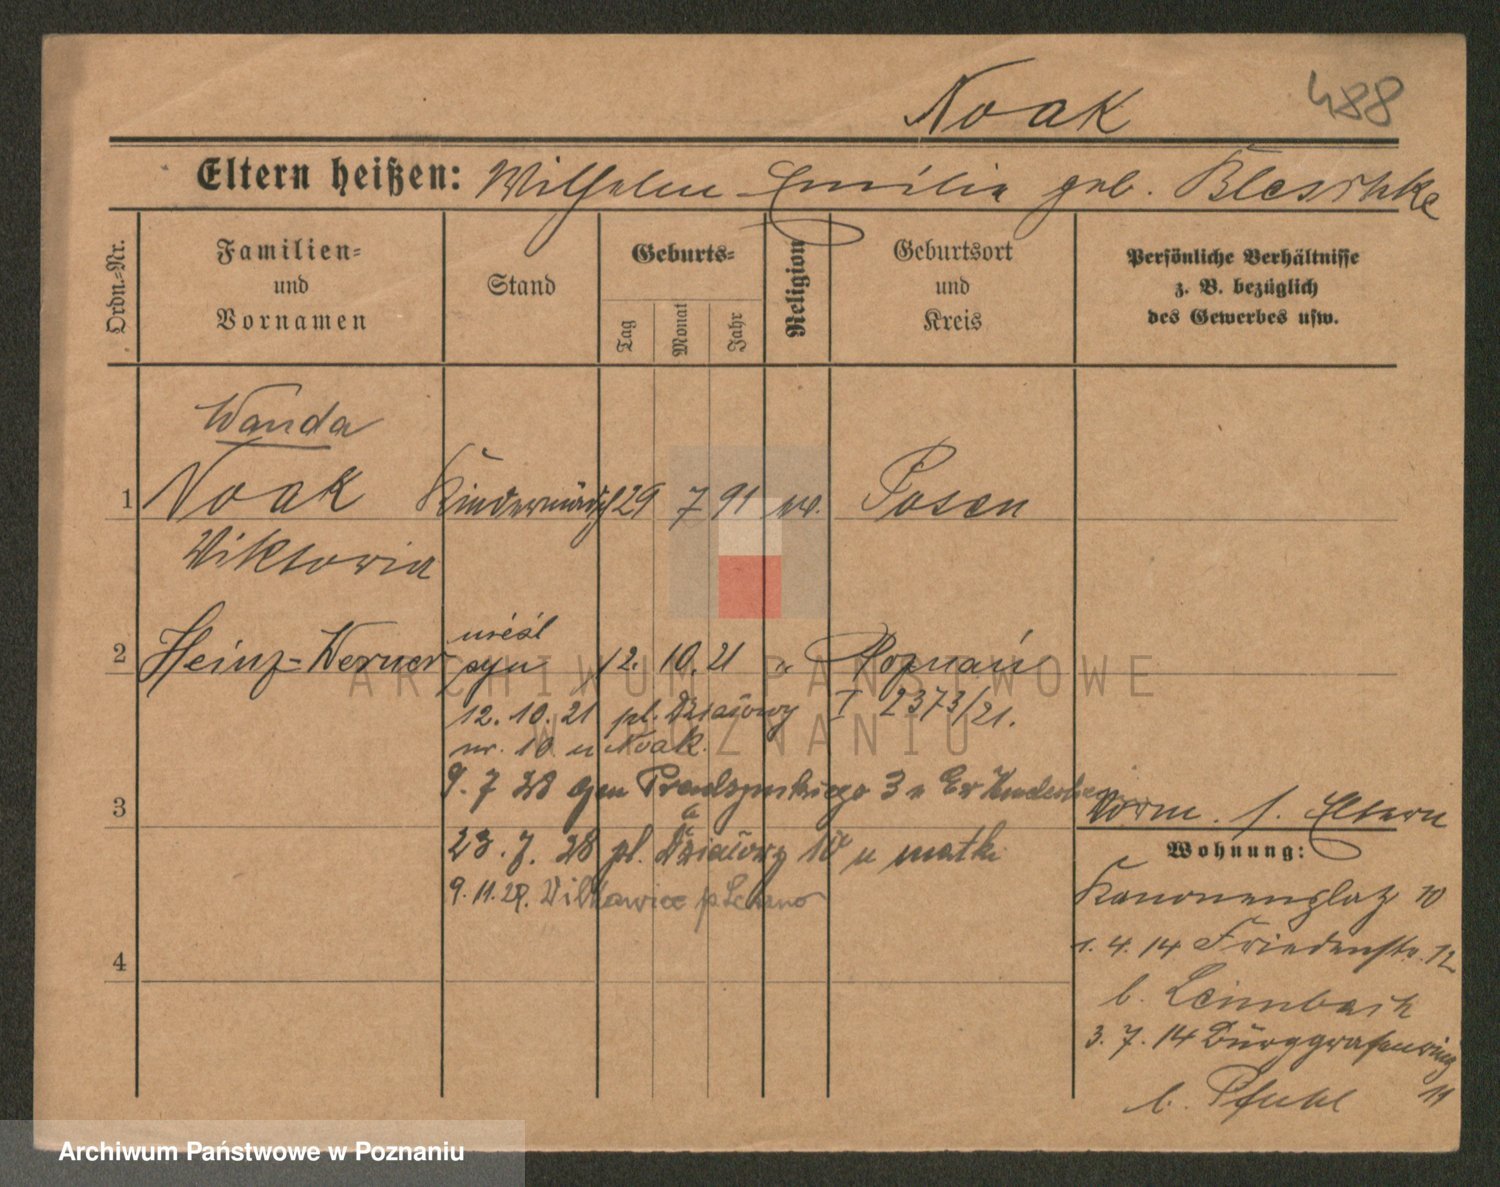 Noak 488
Eltern heißen: Wilhelm Emilia geb. Bleschke
Ordn.-Nr.
Familien-
und
Vornamen
Stand
Geburts-
Tag
Monat
Jahr
Religion
Geburtsort
und
Kreis
Persönliche Verhältnisse
z. B. bezüglich
des Gewerbes usw.
Wanda
1 Noak Kindermädch 29 7 91 ev. Posen
Viktoria
nieśl
2 Heinz-Werner syn 12. 10. 21 " Poznań
12. 10. 21 pl. Działowy I 2373/21.
nr. 10 u Noak.
3 9. 7 28 Gen Prondzynskiego 3
23. 7. 28 pl. Działowy 10 u matki
9. 11. 29.
4
Vorm. s. Eltern
Wohnung:
Kanonenplatz 10
1. 4. 14 Friedenstr. 12
b. Leimbach
3. 7. 14 Burggrafenring
b. Pfuhl 11
ARCHIWUM PAŃSTWOWE
W POZNANIU
Archiwum Państwowe w Poznaniu